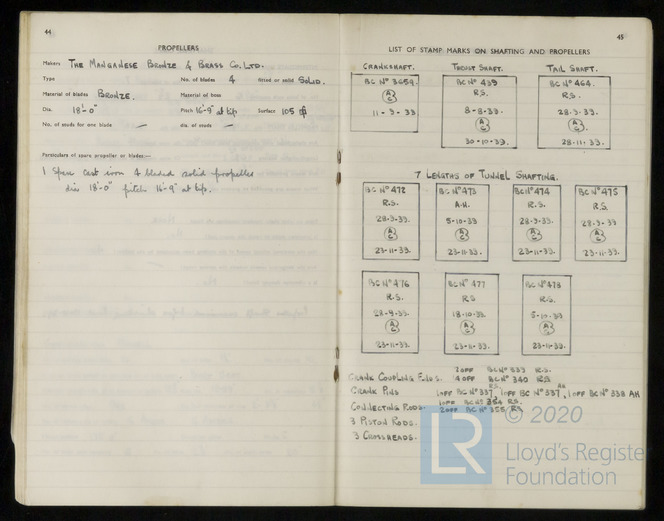 44
PROPELLERS
Makers THE MANGANESE BRONZE & BRASS CO. LTD.
Type No. of blades 4 fitted or solid SOLID.
Material of blades BRONZE. Material of boss
Dia. 18'-0" Pitch 16'-9" at tip Surface 105
No. of studs for one blade — dia. of studs —
Particulars of spare propeller or blades:—
1 Spare cast iron 4 bladed solid propeller
dia 18'-0" pitch 16'-9" at tip.
45
LIST OF STAMP MARKS ON SHAFTING AND PROPELLERS
CRANKSHAFT. THRUST SHAFT. TAIL SHAFT.
BC Nº 3659. BC Nº 439 BC Nº 464.
R.S. R.S.
11-9-33 8-8-33. 28-9-33.
30-10-33. 28-11-33.
7 LENGTHS OF TUNNEL SHAFTING.
BC Nº 472 BC Nº 473 BC Nº 474 BC Nº 475
R.S. A.H. R.S. R.S.
28-9-33. 5-10-33 28-9-33. 28-9-33
23-11-33. 23-11-33. 23-11-33. 23-11-33.
BC Nº 476 BC Nº 477 BC Nº 478
R.S. RS R.S.
28-9-33. 18-10-33. 5-10-33
23-11-33. 23-11-33. 23-11-33.
2 OFF BC Nº 339 R.S.
CRANK COUPLING 4 OFF BC Nº 340 RS
CRANK PINS 1 OFF BC Nº 337 RS, 1 OFF BC Nº 337 AH, 1 OFF BC Nº 338 AH
1 OFF BC Nº 354 RS.
CONNECTING RODS. 2 OFF BC Nº 355 RS.
3 PISTON RODS.
3 CROSSHEADS.
© 2020
LR
Lloyd's Register
Foundation